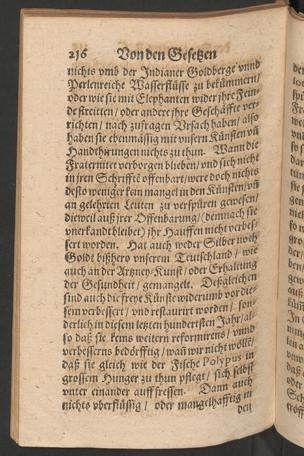 216 Von den Gesetzen
nichts vmb der Indianer Goldberge vnnd
Perlenreiche Wasserflüsse zu bekümmern/
oder wie sie mit Elephanten wider jhre Fein-
de streitten/ oder andere jhre Geschäffte ver-
richten/ nach zufragen Vrsach haben/ also
haben sie ebenmässig mit vnsern Künsten vñ
Handthirungen nichts zu thun. Wann die
Fraterniter verborgen blieben/ vnd sich nicht
in jren Schrifftẽ offenbart/ were doch nichts
desto weniger kan mangel in den Künsten/ vñ
an gelehrten Leuten zu verspüren gewesen/
dieweil auß jrer Offenbarung/ (demnach sie
vnerkandt bleibet) jhr Hauffen nicht verbes-
sert worden. Hat auch weder Silber noch
Goldt bißhero vnserem Teutschland/ wie
auch an der Artzney-Kunst/ oder Erhaltung
der Gesundheit/ gemangelt. Deßgleichen
sind auch die freye Künste widerumb vor die-
sem verbessert/ vnd restaurirt worden/ son-
derlich in diesem letzten hundertisten Jahr/ al-
so daß sie keins weitern reformirens/ vnnd
verbesserns bedörfftig/ wañ wir nicht wöllẽ/
daß sie gleich wie der Fische Polypus in
grossem Hunger zu thun pflegt/ sich selbst
vnter einander auffressen. Dann auch
nichts vberflüssig/ oder mangelhafftig in
den